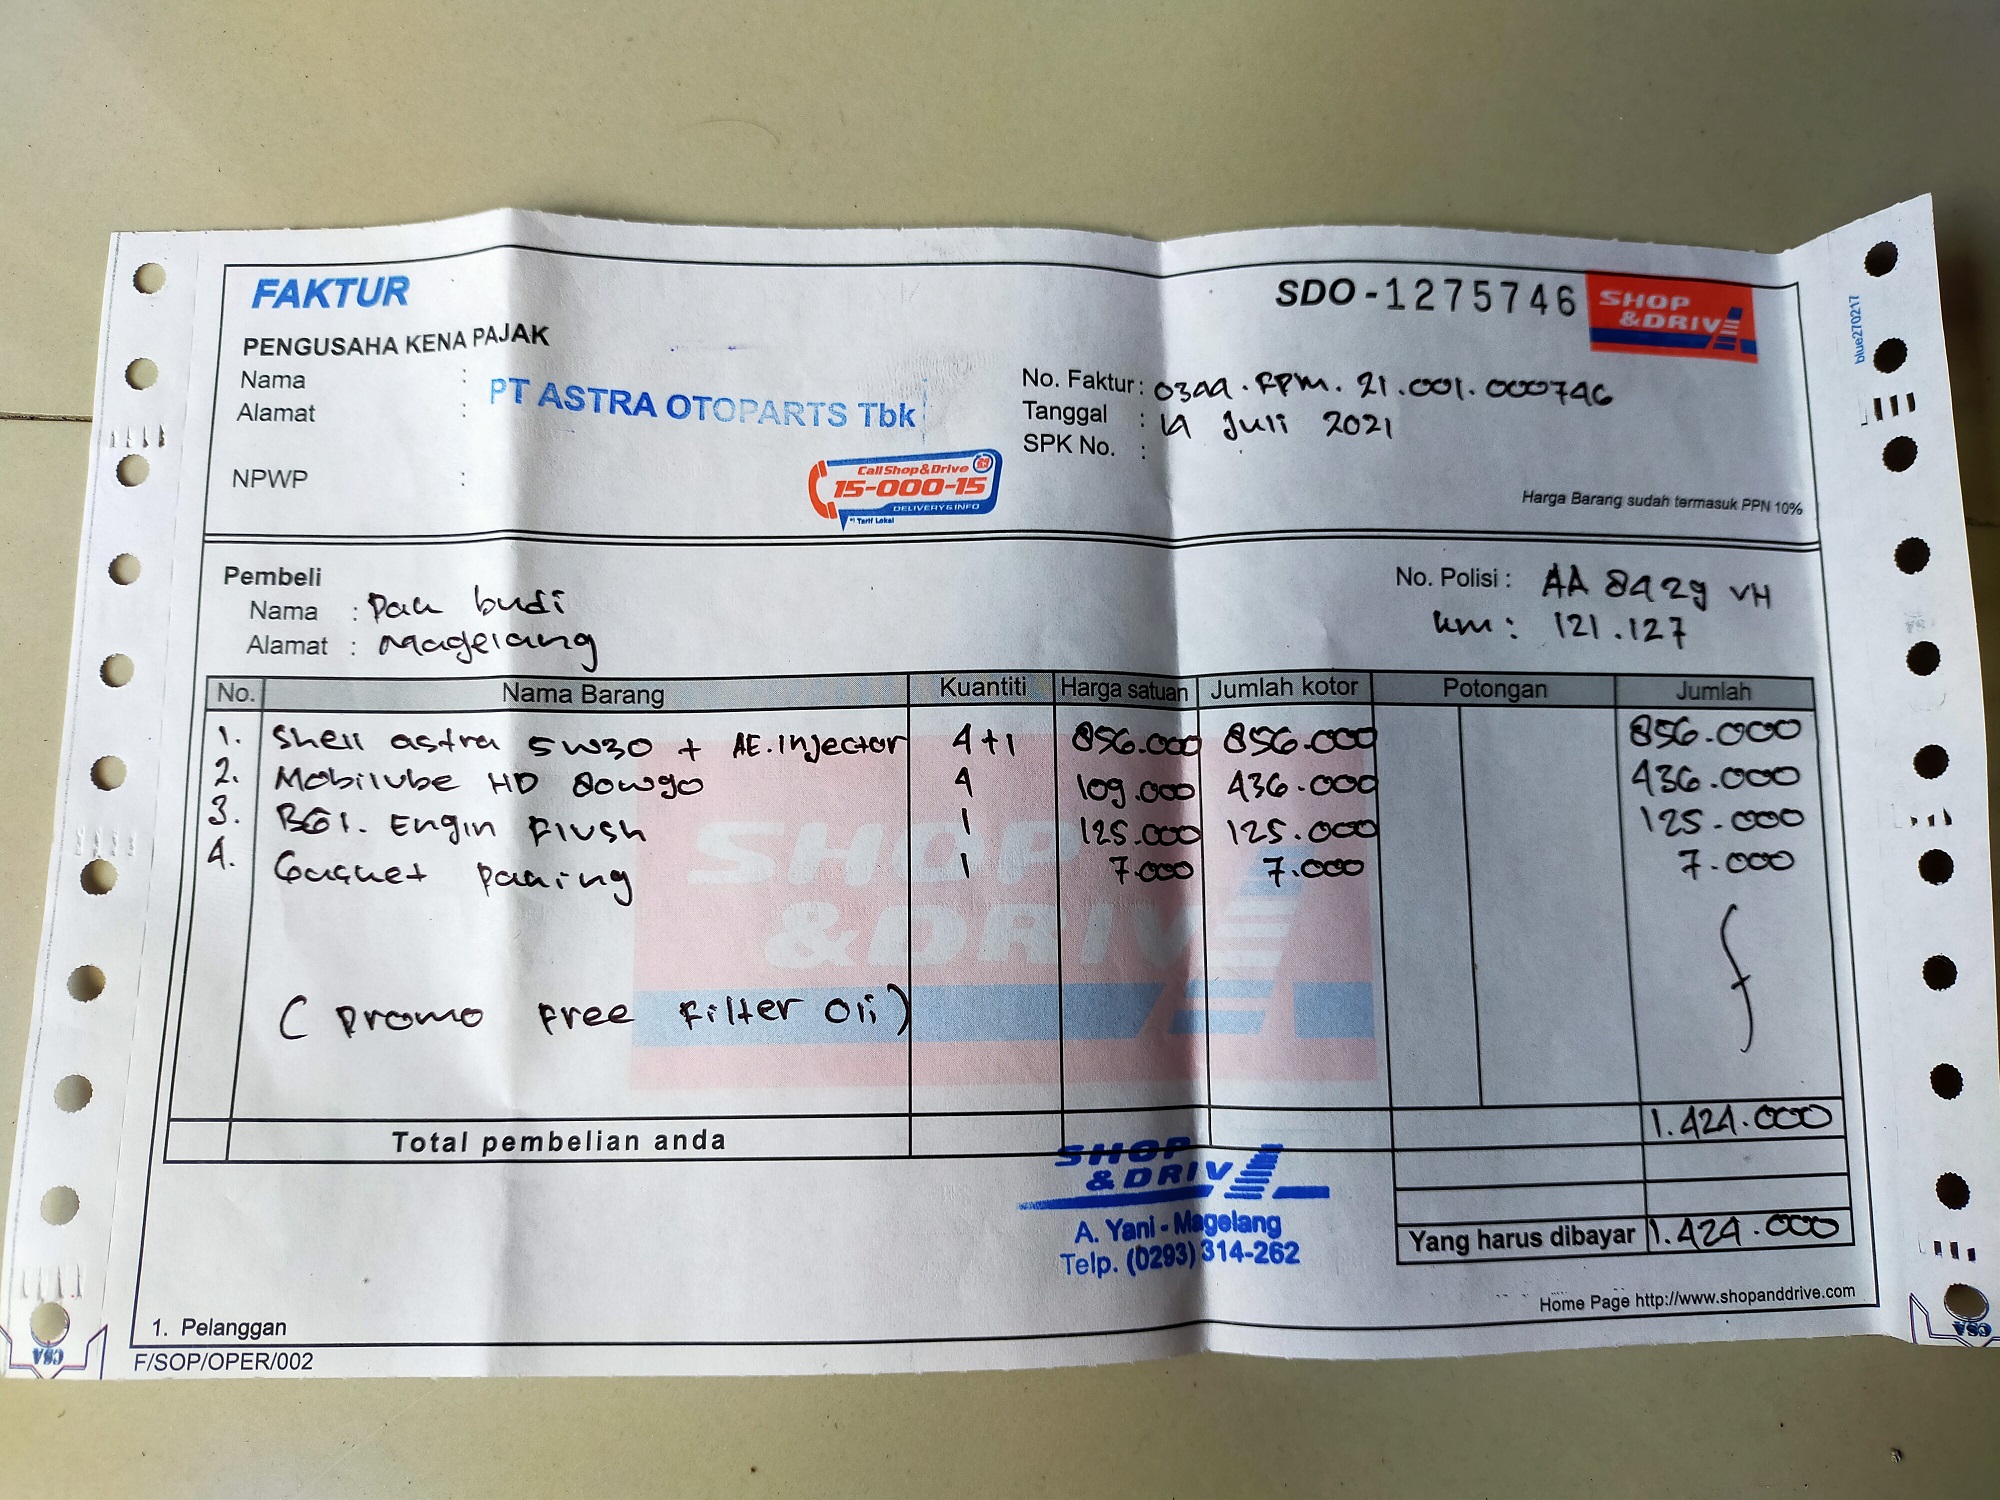 FAKTUR
SDO - 1275746
SHOP & DRIVE
PENGUSAHA KENA PAJAK
Nama :
Alamat :
PT ASTRA OTOPARTS Tbk
NPWP :
Call Shop & Drive
15-000-15
DELIVERY & INFO
*) Tarif Lokal
No. Faktur : 0344.FPM.21.001.000746
Tanggal : 14 Juli 2021
SPK No. :
blue270217
Harga Barang sudah termasuk PPN 10%
Pembeli
Nama : Pak budi
Alamat : Magelang
No. Polisi : AA 8429 VH
km : 121.127
No. Nama Barang Kuantiti Harga satuan Jumlah kotor Potongan Jumlah
1. Shell astra 5W30 + AE. Injector 4+1 856.000 856.000 856.000
2. Mobilube HD 80W90 4 109.000 436.000 436.000
3. BG1. Engin Flush 1 125.000 125.000 125.000
4. Gasket Paking 1 7.000 7.000 7.000
SHOP & DRIVE
( Promo Free Filter Oli )
Total pembelian anda 1.424.000
SHOP & DRIVE
A. Yani - Magelang
Telp. (0293) 314-262
Yang harus dibayar 1.424.000
Home Page http://www.shopanddrive.com
1. Pelanggan
F/SOP/OPER/002
CSA
CSA